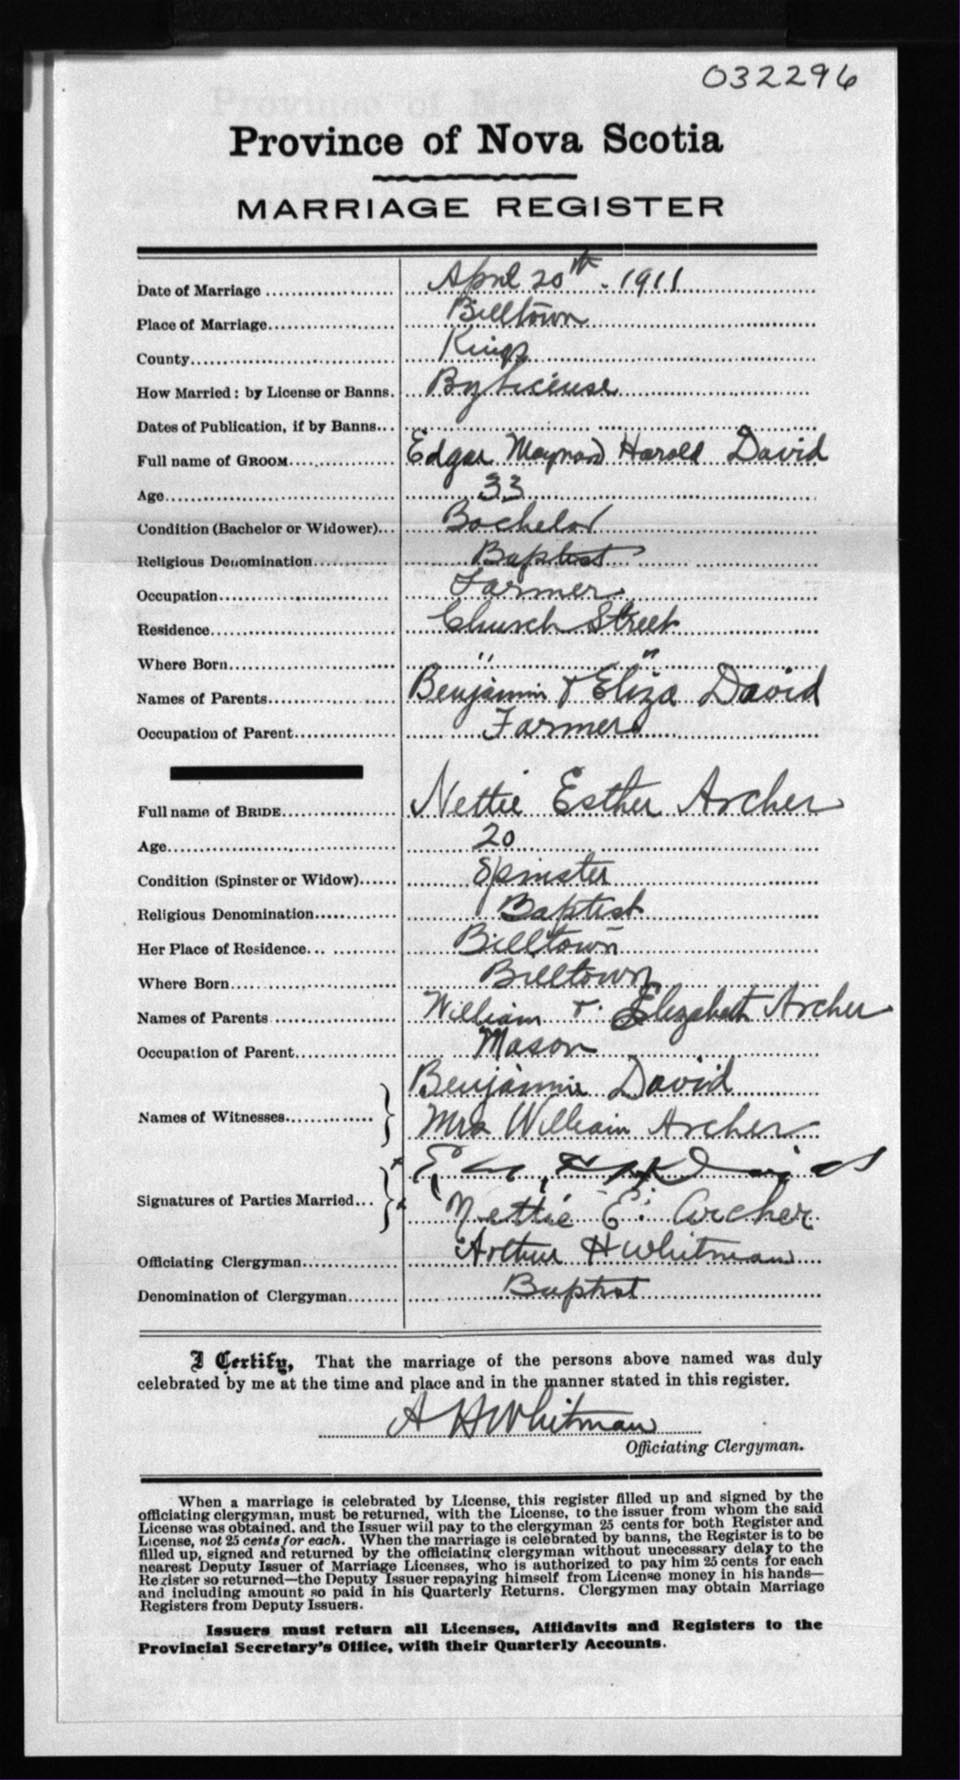 032296
Province of Nova Scotia
MARRIAGE REGISTER
Date of Marriage April 20th. 1911
Place of Marriage Billtown
County Kings
How Married: by License or Banns. By License
Dates of Publication, if by Banns
Full name of GROOM Edgar Maynard Harold David
Age 33
Condition (Bachelor or Widower) Bachelor
Religious Denomination Baptist
Occupation Farmer
Residence Church Street
Where Born " "
Names of Parents Benjamin & Eliza David
Occupation of Parent Farmer
Full name of BRIDE Nettie Esther Archer
Age 20
Condition (Spinster or Widow) Spinster
Religious Denomination Baptist
Her Place of Residence Billtown
Where Born Billtown
Names of Parents William & Elizabeth Archer
Occupation of Parent Mason
Benjamin David
Names of Witnesses
Mrs William Archer
Signatures of Parties Married
Nettie E. Archer
Officiating Clergyman Arthur H Whitman
Denomination of Clergyman Baptist
I Certify, That the marriage of the persons above named was duly
celebrated by me at the time and place and in the manner stated in this register.
A H Whitman
Officiating Clergyman.
When a marriage is celebrated by License, this register filled up and signed by the
officiating clergyman, must be returned, with the License, to the issuer from whom the said
License was obtained, and the Issuer will pay to the clergyman 25 cents for both Register and
License, not 25 cents for each. When the marriage is celebrated by banns, the Register is to be
filled up, signed and returned by the officiating clergyman without unnecessary delay to the
nearest Deputy Issuer of Marriage Licenses, who is authorized to pay him 25 cents for each
Register so returned—the Deputy Issuer repaying himself from License money in his hands—
and including amount so paid in his Quarterly Returns. Clergymen may obtain Marriage
Registers from Deputy Issuers.
Issuers must return all Licenses, Affidavits and Registers to the
Provincial Secretary's Office, with their Quarterly Accounts.